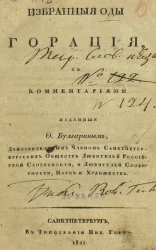 ИЗБРАННЫЯ ОДЫ
ГОРАЦІЯ,
съ
КОММЕНТАРІЯМИ
№ 124
ИЗДАННЫЯ
Ѳ. Булгаринымъ,
Дѣйствительнымъ Членомъ Санктпетер-
бургскихъ Обществъ Любителей Россій-
ской Словесности, и Любителей Словес-
ности, Наукъ и Художествъ.
САНКТПЕТЕРБУРГЪ,
Въ Типографіи Ник. Греча,
1821.